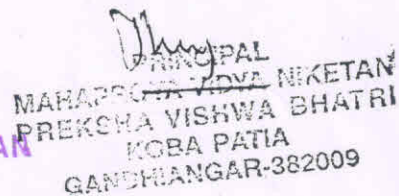 PRINCIPAL
VIDYA NIKETAN
PREKSHA VISHWA BHATRI
KOBA PATIA
GANDHIANGAR-382009
AN